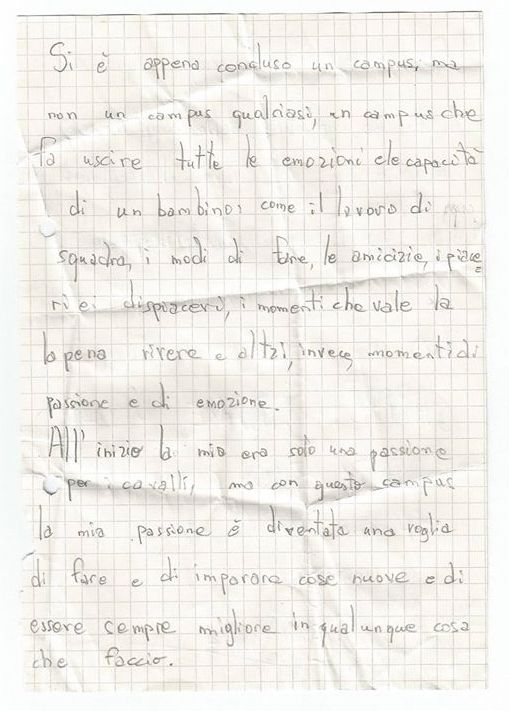 Si è appena concluso un campus, ma
non un campus qualsiasi, un campus che
fà uscire tutte le emozioni e le capacità
di un bambino: come il lavoro di
squadra, i modi di fare, le amicizie, i piace
ri e i dispiaceri, i momenti che vale la
la pena vivere e altri, invece momenti di
passione e di emozione.
All' inizio la mia era solo una passione
per i cavalli, ma con questo campus
la mia passione è diventata una voglia
di fare e di imparare cose nuove e di
essere sempre migliore in qualunque cosa
che faccio.